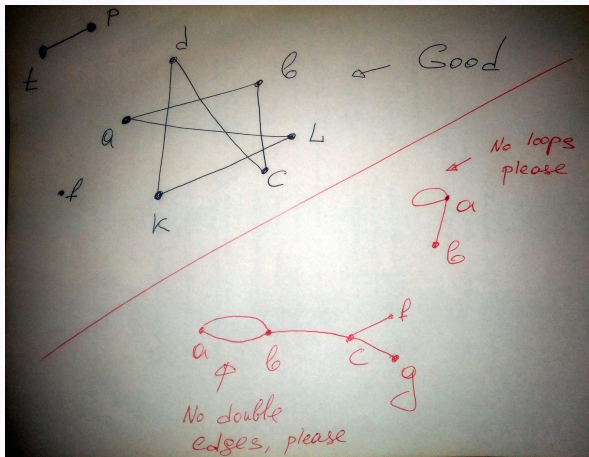 p
t
d
b
Good
a
L
c
f
k
No loops
please
a
b
f
a
b
c
g
No double
edges, please